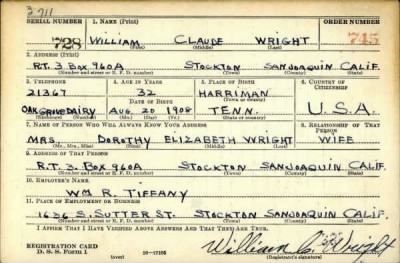 3,711
SERIAL NUMBER 1. NAME (Print) ORDER NUMBER
728 WILLIAM CLAUDE WRIGHT 745
(First) (Middle) (Last)
2. ADDRESS (Print)
RT. 3 BOX 960A STOCKTON SANJOAQUIN CALIF.
(Number and street or R. F. D. number) (Town) (County) (State)
3. TELEPHONE 4. AGE IN YEARS 5. PLACE OF BIRTH 6. COUNTRY OF CITIZENSHIP
21367 32 HARRIMAN
DATE OF BIRTH (Town or county)
OAK GROVE DAIRY AUG 20 1908 TENN. U.S.A.
(Exchange) (Number) (Mo.) (Day) (Yr.) (State or country)
7. NAME OF PERSON WHO WILL ALWAYS KNOW YOUR ADDRESS 8. RELATIONSHIP OF THAT PERSON
MRS. DOROTHY ELIZABETH WRIGHT WIFE
(Mr., Mrs., Miss) (First) (Middle) (Last)
9. ADDRESS OF THAT PERSON
RT. 3. BOX 960A STOCKTON SANJOAQUIN CALIF.
(Number and street or R. F. D. number) (Town) (County) (State)
10. EMPLOYER'S NAME
WM R. TIFFANY
11. PLACE OF EMPLOYMENT OR BUSINESS
1636 S. SUTTER ST. STOCKTON SANJOAQUIN CALIF.
(Number and street or R. F. D. number) (Town) (County) (State)
I AFFIRM THAT I HAVE VERIFIED ABOVE ANSWERS AND THAT THEY ARE TRUE.
REGISTRATION CARD
D. S. S. Form 1 (over) 16—17105 William C. Wright
(Registrant's signature)